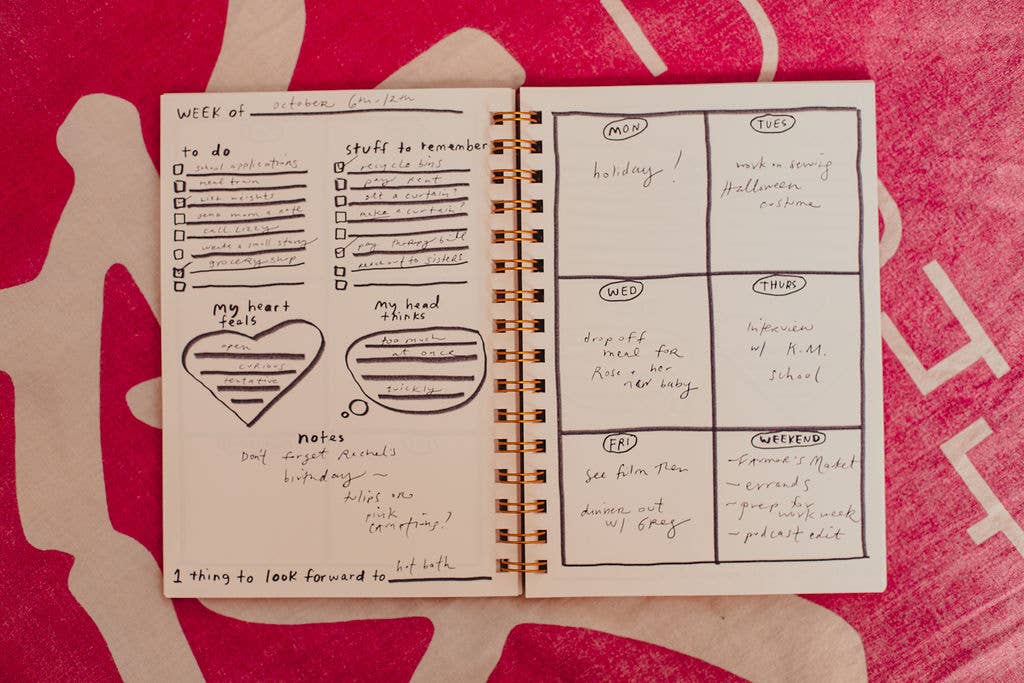 WEEK of October 6th-12th
to do
school applications
meal train
lift weights
send mom a note
call Lizzy
write a small story
grocery shop
stuff to remember
recycle bins
pay rent
get a curtain?
make a curtain?
pay therapy bill
reach out to sisters
my heart
feels
open
curious
tentative
my head
thinks
too much
at once
quickly
notes
Don't forget Rachel's
birthday ~
tulips or
pink
carnations?
1 thing to look forward to hot bath
MON
holiday!
TUES
work on sewing
Halloween
costume
WED
drop off
meal for
Rose + her
new baby
THURS
Interview
w/ K.M.
school
FRI
see film then
dinner out
w/ Greg
WEEKEND
- Farmer's Market
- errands
- prep for
work week
- podcast edit